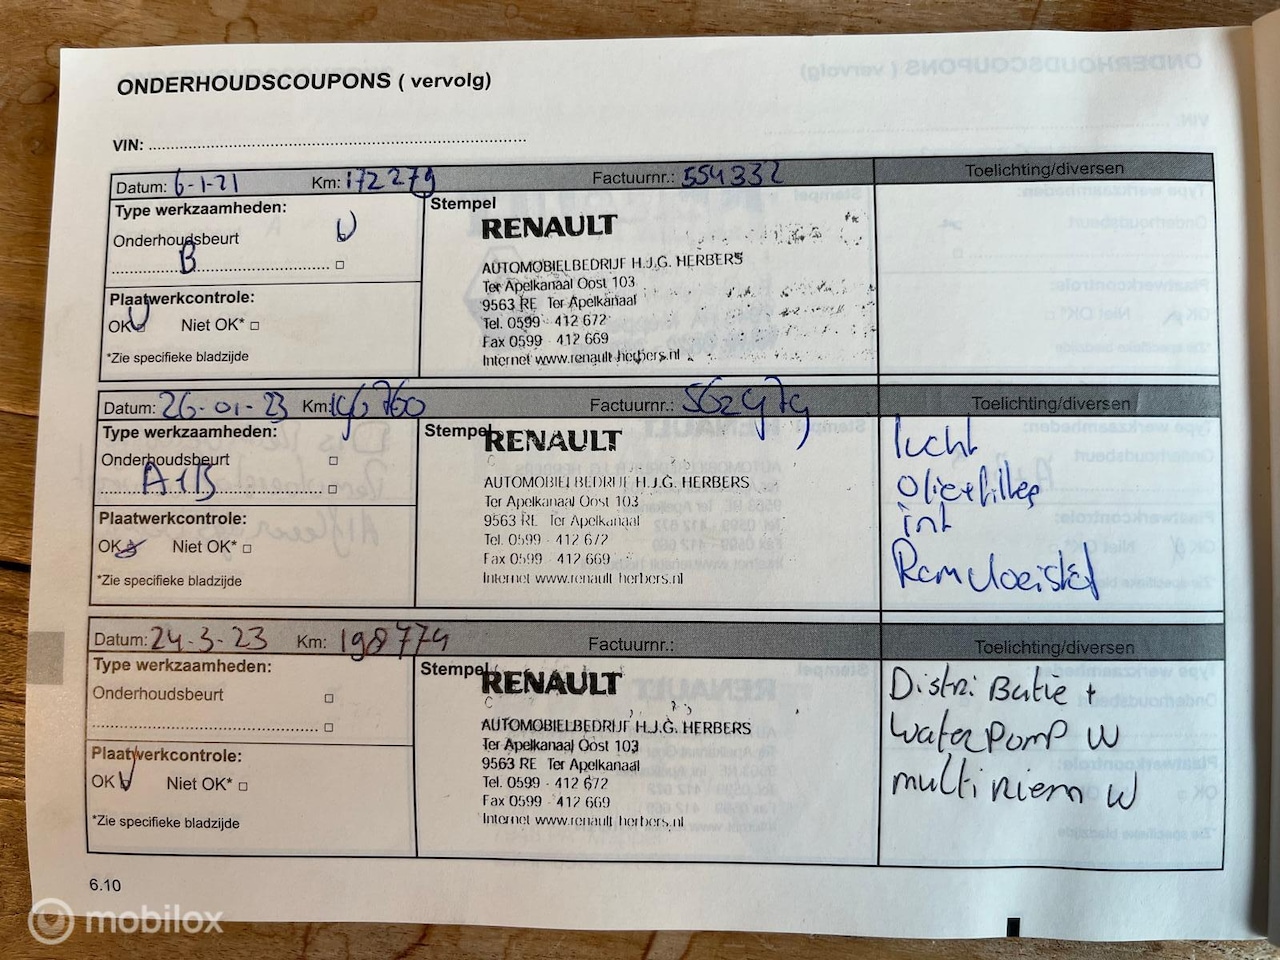 ONDERHOUDSCOUPONS ( vervolg)
VIN:
Datum: 6-1-21 Km: 172279 Factuurnr.: 554332 Toelichting/diversen
Type werkzaamheden:
Onderhoudsbeurt
B
Plaatwerkcontrole:
OK Niet OK*
*Zie specifieke bladzijde
Stempel
RENAULT
AUTOMOBIELBEDRIJF H.J.G. HERBERS
Ter Apelkanaal Oost 103
9563 RE Ter Apelkanaal
Tel. 0599 - 412 672
Fax 0599 - 412 669
Internet www.renault-herbers.nl
Datum: 26-01-23 Km: 196760 Factuurnr.: 562979 Toelichting/diversen
Type werkzaamheden:
Onderhoudsbeurt
A+B
Plaatwerkcontrole:
OK Niet OK*
*Zie specifieke bladzijde
Stempel
RENAULT
AUTOMOBIELBEDRIJF H.J.G. HERBERS
Ter Apelkanaal Oost 103
9563 RE Ter Apelkanaal
Tel. 0599 - 412 672
Fax 0599 - 412 669
Internet www.renault-herbers.nl
lucht
olie+filter
int
Remvloeistof
Datum: 24-3-23 Km: 198774 Factuurnr.: Toelichting/diversen
Type werkzaamheden:
Onderhoudsbeurt
Plaatwerkcontrole:
OK Niet OK*
*Zie specifieke bladzijde
Stempel
RENAULT
AUTOMOBIELBEDRIJF H.J.G. HERBERS
Ter Apelkanaal Oost 103
9563 RE Ter Apelkanaal
Tel. 0599 - 412 672
Fax 0599 - 412 669
Internet www.renault-herbers.nl
DistriButie +
waterPomP W
multiriem W
6.10
mobilox